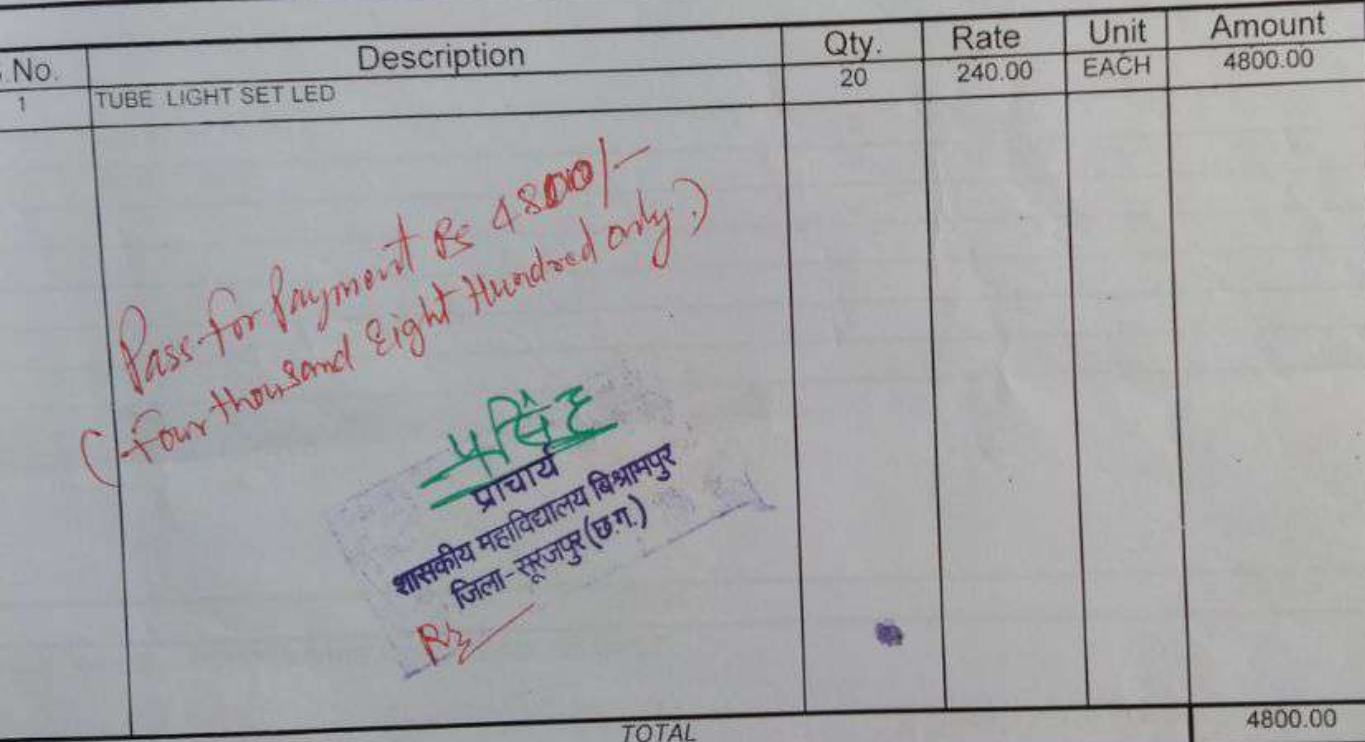 S.No. Description Qty. Rate Unit Amount
1 TUBE LIGHT SET LED 20 240.00 EACH 4800.00
Pass for Payment Rs 4800/-
(Four thousand Eight Hundred only.)
प्राचार्य
शासकीय महाविद्यालय बिश्रामपुर
जिला-सूरजपुर (छ.ग.)
TOTAL 4800.00